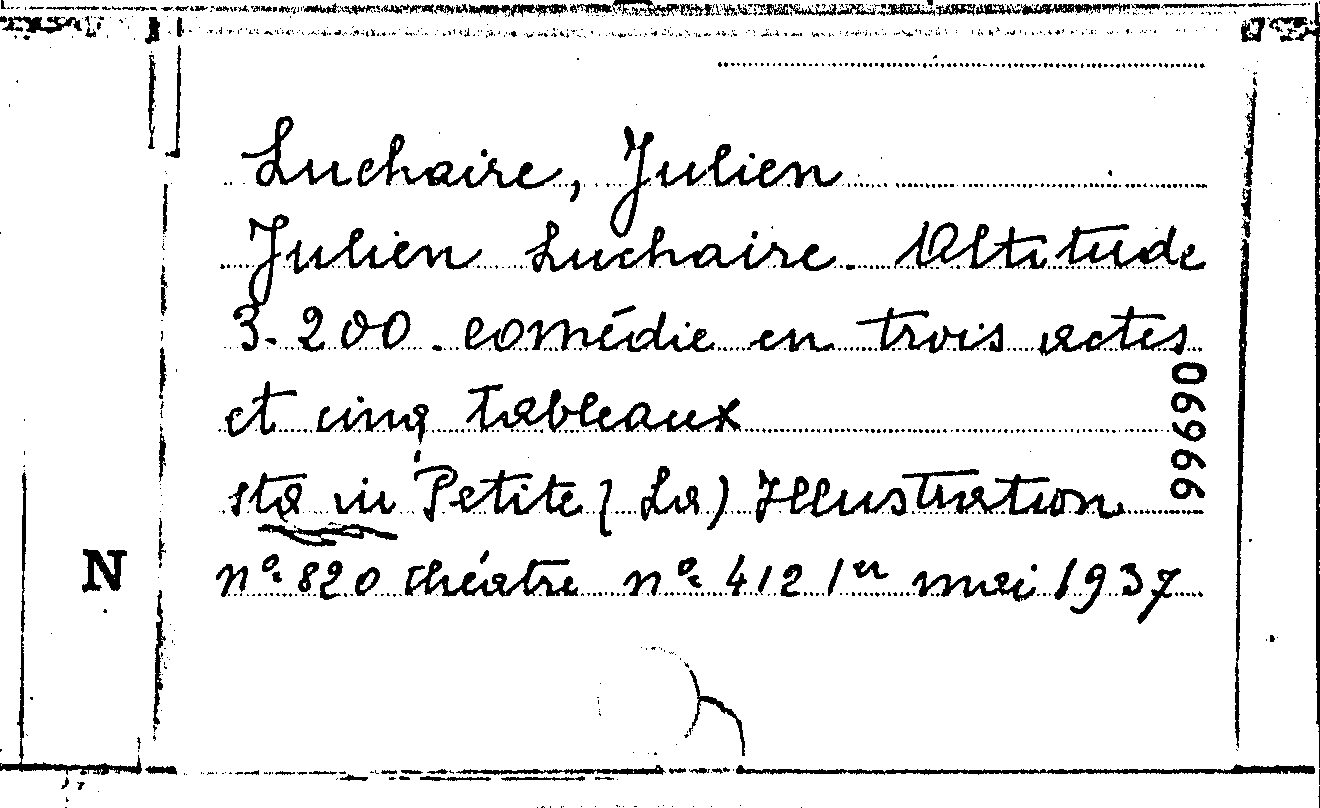 Luchaire, Julien
Julien Luchaire. Altitude
3.200. comédie en trois actes
et cinq tableaux
sta in Petite (La) Illustration
nº 820 théatre nº 412 1er mai 1937
99690
N